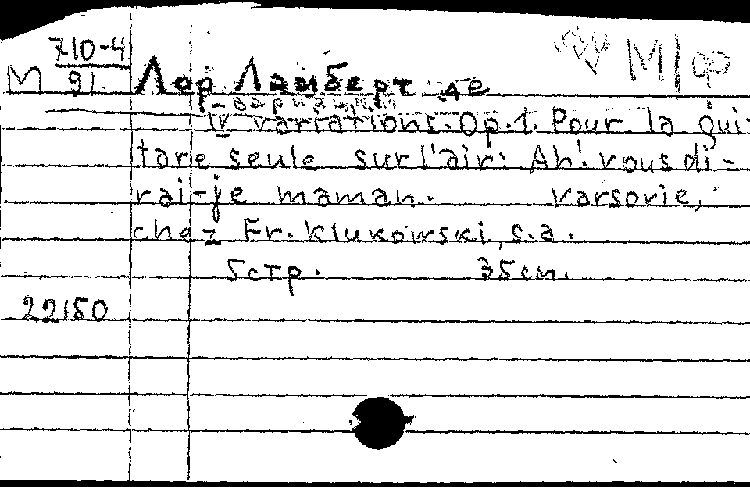 M 710-4/91 Лор Ламберт де M/ф
IV variations. Op. 1. Pour la gui-
tare seule sur l'air: Ah! vous di-
rai-je maman. Varsovie,
chez Fr. Klukowski, s.a.
5 стр. 35 cm.
22150